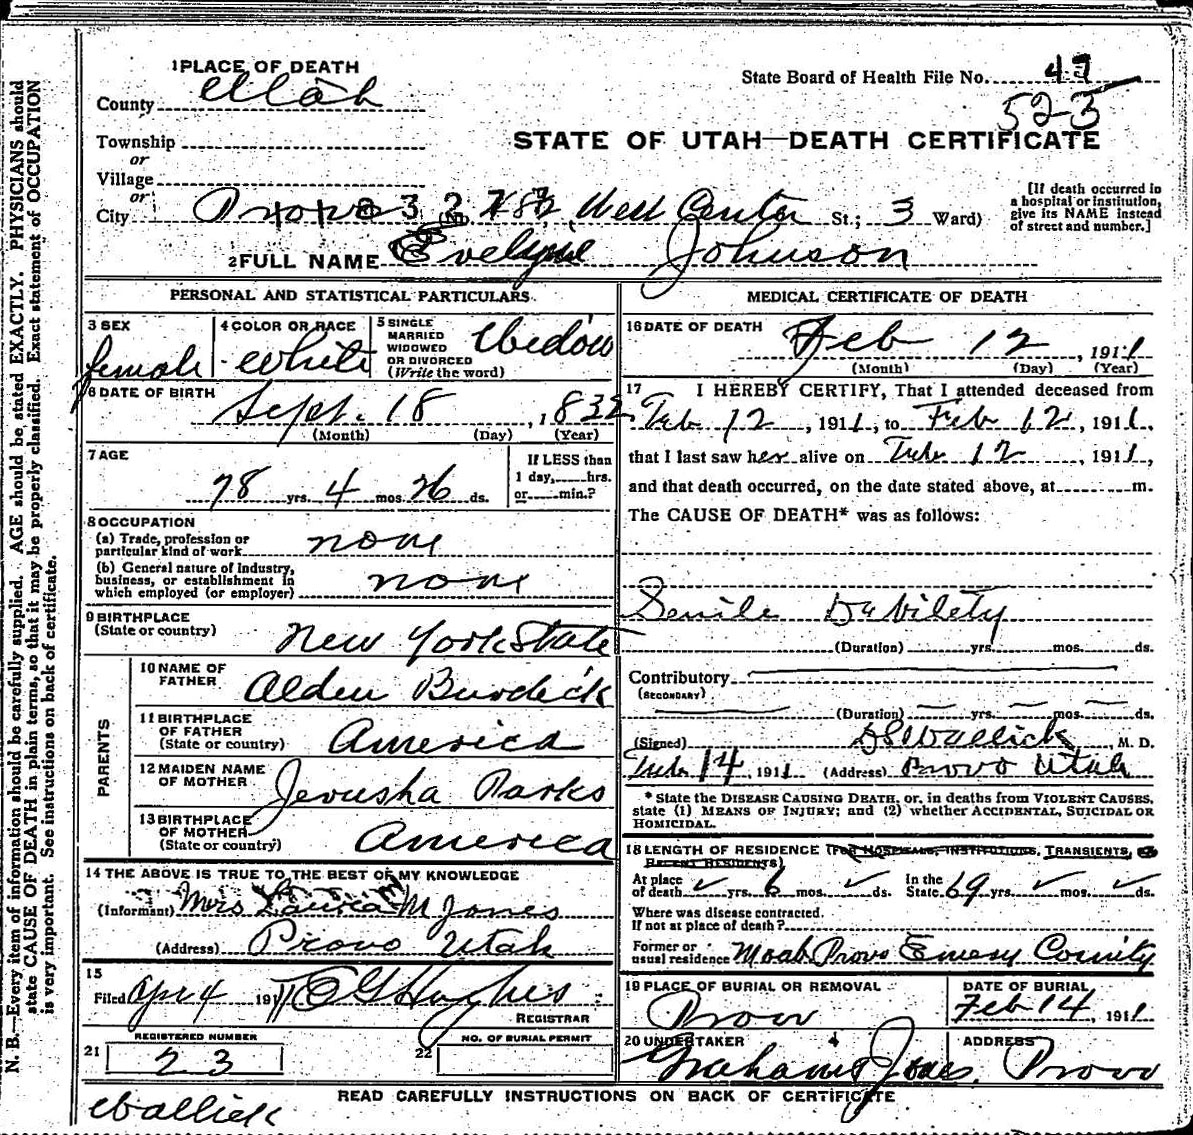 1 PLACE OF DEATH
County Utah
State Board of Health File No. 47
523
Township
or
Village
or
City Provo 3 2 7 West Center St.; 3 Ward)
STATE OF UTAH—DEATH CERTIFICATE
[If death occurred in a hospital or institution, give its NAME instead of street and number.]
2 FULL NAME Evelyne Johnson
PERSONAL AND STATISTICAL PARTICULARS
3 SEX female
4 COLOR OR RACE White
5 SINGLE MARRIED WIDOWED OR DIVORCED (Write the word) Widow
6 DATE OF BIRTH Sept. 18, 1832
(Month) (Day) (Year)
7 AGE 78 yrs. 4 mos. 26 ds.
If LESS than 1 day, hrs. or min.?
8 OCCUPATION
(a) Trade, profession or particular kind of work none
(b) General nature of industry, business, or establishment in which employed (or employer) none
9 BIRTHPLACE (State or country) New York State
PARENTS
10 NAME OF FATHER Alden Burdick
11 BIRTHPLACE OF FATHER (State or country) America
12 MAIDEN NAME OF MOTHER Jerusha Parks
13 BIRTHPLACE OF MOTHER (State or country) America
14 THE ABOVE IS TRUE TO THE BEST OF MY KNOWLEDGE
(Informant) Mrs M Jones
(Address) Provo Utah
15
Filed Apr 4 191 Hughes
REGISTRAR
REGISTERED NUMBER
21 23
NO. OF BURIAL PERMIT
22
MEDICAL CERTIFICATE OF DEATH
16 DATE OF DEATH Feb 12, 1911
(Month) (Day) (Year)
17 I HEREBY CERTIFY, That I attended deceased from
Feb 12, 1911, to Feb 12, 1911,
that I last saw her alive on Feb 12, 1911,
and that death occurred, on the date stated above, at m.
The CAUSE OF DEATH* was as follows:
Senile Debilety
(Duration) yrs. mos. ds.
Contributory
(SECONDARY)
(Duration) yrs. mos. ds.
(Signed) Wallick, M. D.
Feb 14, 1911 (Address) Provo Utah
* State the DISEASE CAUSING DEATH, or, in deaths from VIOLENT CAUSES, state (1) MEANS OF INJURY; and (2) whether ACCIDENTAL, SUICIDAL OR HOMICIDAL.
18 LENGTH OF RESIDENCE (FOR HOSPITALS, INSTITUTIONS, TRANSIENTS, OR RECENT RESIDENTS)
At place of death yrs. 6 mos. ds. In the State 69 yrs. mos. ds.
Where was disease contracted. If not at place of death?
Former or usual residence Moab Provo Emery County
19 PLACE OF BURIAL OR REMOVAL Provo
DATE OF BURIAL Feb 14, 1911
20 UNDERTAKER Graham Jones
ADDRESS Provo
READ CAREFULLY INSTRUCTIONS ON BACK OF CERTIFICATE
Wallick
N. B.—Every item of information should be carefully supplied. AGE should be stated EXACTLY. PHYSICIANS should
state CAUSE OF DEATH in plain terms, so that it may be properly classified. Exact statement of OCCUPATION
is very important. See instructions on back of certificate.